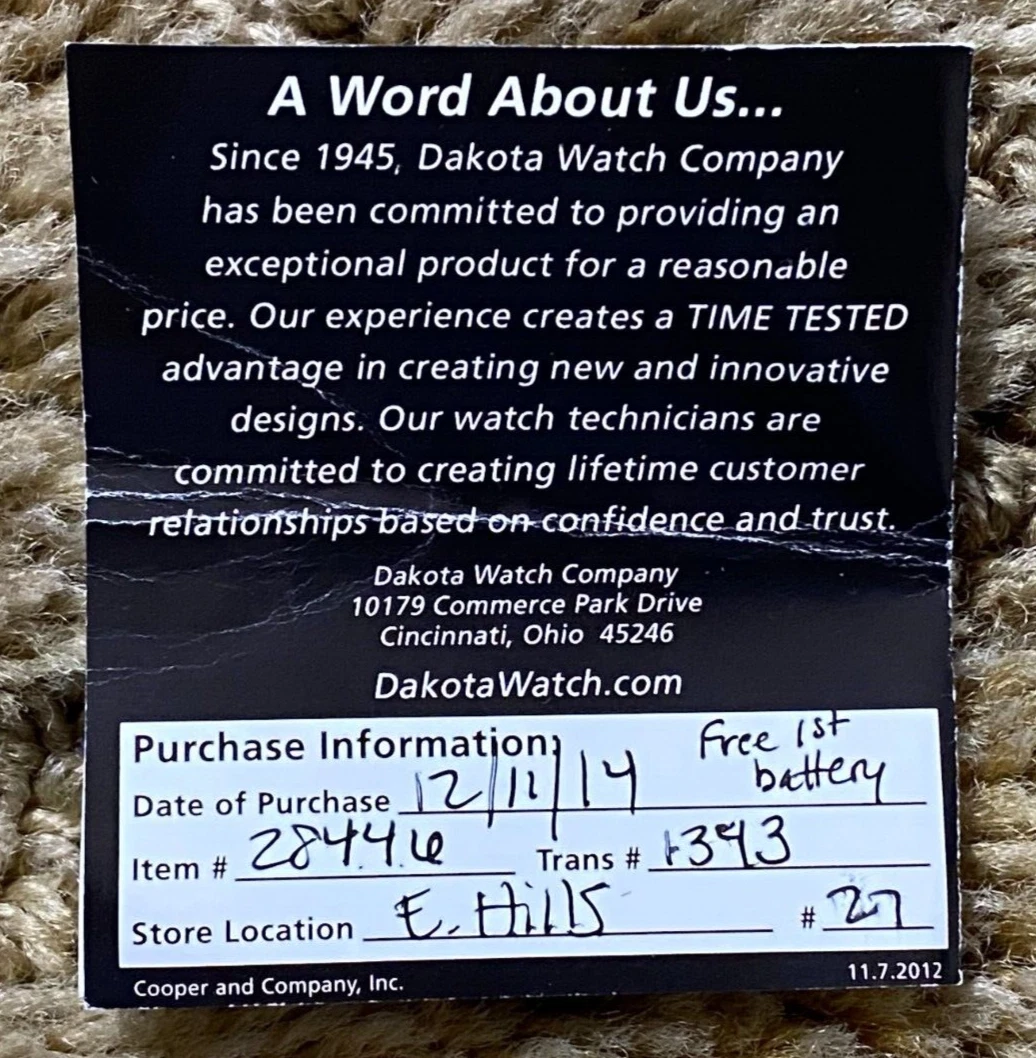 A Word About Us...
Since 1945, Dakota Watch Company
has been committed to providing an
exceptional product for a reasonable
price. Our experience creates a TIME TESTED
advantage in creating new and innovative
designs. Our watch technicians are
committed to creating lifetime customer
relationships based on confidence and trust.
Dakota Watch Company
10179 Commerce Park Drive
Cincinnati, Ohio 45246
DakotaWatch.com
Purchase Information: Free 1st
battery
Date of Purchase 12/11/14
Item # 28446 Trans # 1393
Store Location E. Hills # 27
Cooper and Company, Inc. 11.7.2012